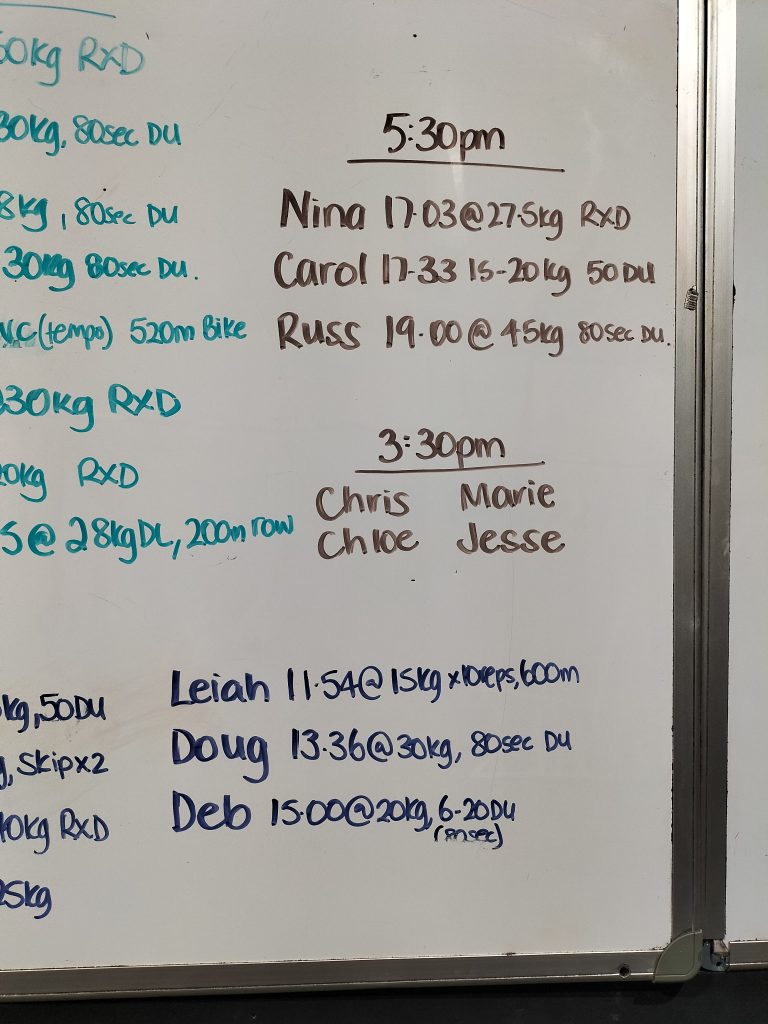 50kg RXD
30kg, 80sec DU
8kg, 80sec DU
30kg 80sec DU.
V.C(tempo) 520m Bike
30kg RXD
0kg RXD
S@28kgDL, 200m row
5:30pm
Nina 17.03@27.5kg RXD
Carol 17-33 15-20kg 50DU
Russ 19.00@45kg 80sec DU.
3:30pm
Chris Marie
Chloe Jesse
kg, 50DU
, Skipx2
0kg RXD
25kg
Leiah 11.54@15kg x10reps, 600m
Doug 13.36@30kg, 80sec DU
Deb 15.00@20kg, 6-20DU
(80sec)